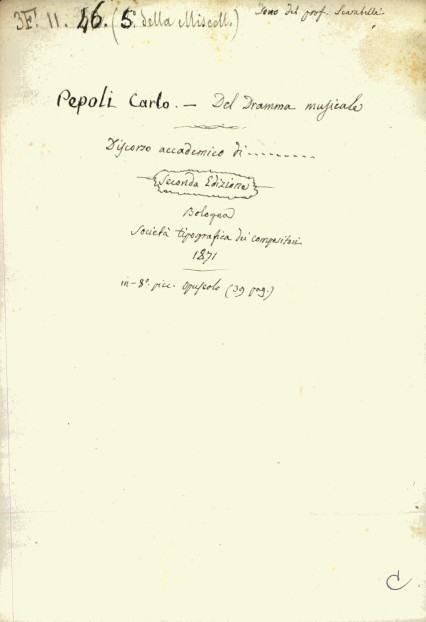 3F. II. 46. (5. della Miscell.)
Dono del prof. Scarabelli.
Pepoli Carlo. — Del Dramma musicale
Discorso accademico di ---------
Seconda Edizione
Bologna
Società tipografica dei compositori
1871
in-8°. picc. Opuscolo (39 pag.)
C